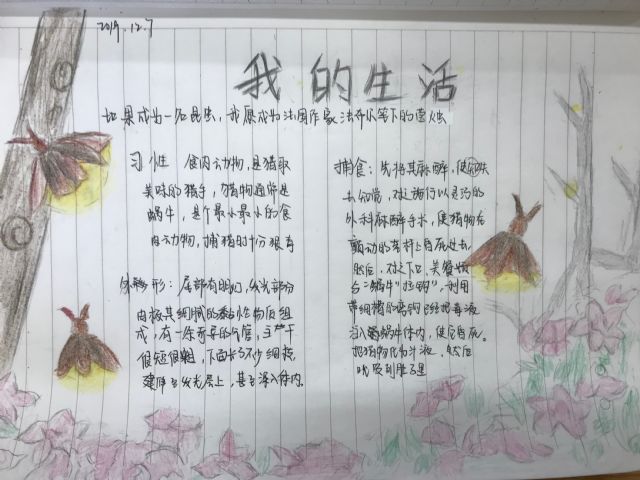 2019.12.7
我的生活
如果成为一名昆虫，我愿成为法国作家法布尔笔下的萤火虫
习性 食肉动物，是猎取
美味的猎手，猎物通常是
蜗牛，是个最小最小的食
肉动物，捕猎时十分狠毒
外形：尾部有明灯，发光部分
由极其细腻的黏性物质组
成，有一条奇异的气管，主干
很短很粗，下面长了不少细枝
延伸至发光层上，甚至深入体内。
捕食：先将其麻醉，使它失
去知觉，对它施行以灵巧的
外科麻醉手术，使猎物在
颤动的茎秆上自
然后，对之下口，
蜗牛 利用
带细槽的弯钩 把毒液
注入蜗牛体内，使
把猎物化为汁液，然后
吮吸到肚子里